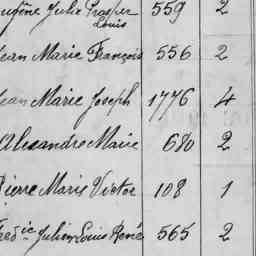 Eugène Julie Prosper 559 2
Louis
Jean Marie François 556 2
Jean Marie Joseph 1776 4
Alexandre Marie 680 2
Pierre Marie Victor 108 1
Fredic Julien Louis René 565 2